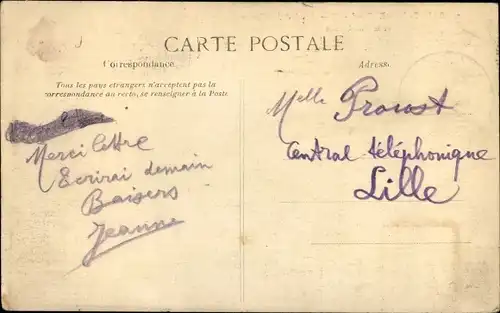 CARTE POSTALE
Correspondance
Adresse
Tous les pays étrangers n'acceptent pas la
correspondance au recto, se renseigner à la Poste
Merci lettre
Ecrirai demain
Baisers
Jeanne
Melle Proust
Central téléphonique
Lille